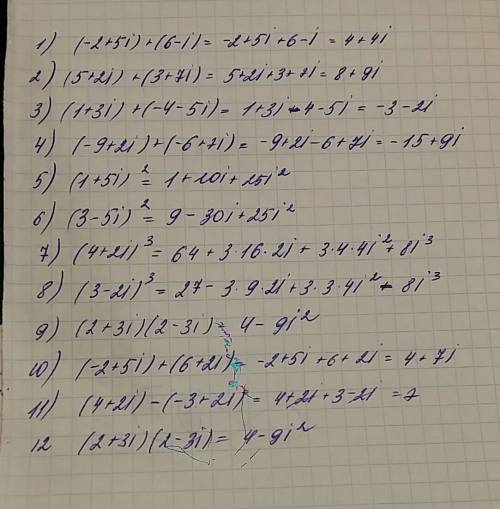 1) (-2+5i)+(6-i)= -2+5i+6-i=4+4i
2) (5+2i)+(3+7i)= 5+2i+3+7i=8+9i
3) (1+3i)+(-4-5i)= 1+3i-4-5i=-3-2i
4) (-9+2i)+(-6+7i)= -9+2i-6+7i=-15+9i
5) (1+5i)²= 1+10i+25i²
6) (3-5i)²= 9-30i+25i²
7) (4+2i)³= 64+3·16·2i+3·4·4i²+8i³
8) (3-2i)³= 27-3·9·2i+3·3·4i²-8i³
9) (2+3i)(2-3i) 4-9i²
10) (-2+5i)+(6+2i) -2+5i+6+2i=4+7i
11) (4+2i)-(-3+2i)= 4+2i+3-2i=7
12 (2+3i)(2-3i)= 4-9i²